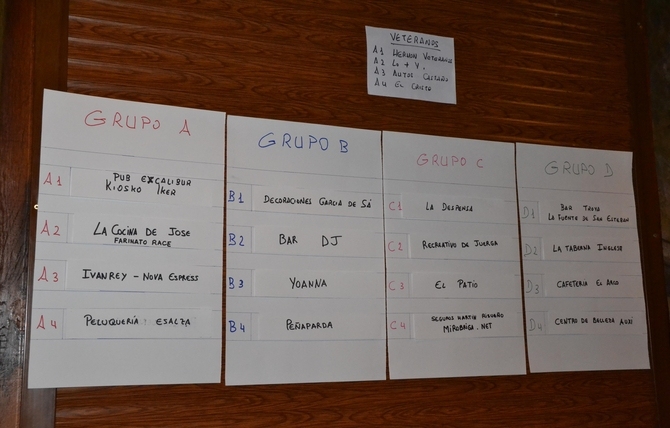 VETERANOS
A1 HERNON VETERANOS
A2 Lo + Y.
A3 AUTOS CASTAÑO
A4 EL CRISTO
GRUPO A
A1 PUB EXCALIBUR
KIOSKO IKER
A2 LA COCINA DE JOSE
FARINATO RACE
A3 IVANREY - NOVA EXPRESS
A4 PELUQUERIA ESALZA
GRUPO B
B1 DECORACIONES GARCIA DE SÁ
B2 BAR DJ
B3 YOANNA
B4 PEÑAPARDA
GRUPO C
C1 LA DESPENSA
C2 RECREATIVO DE JUERGA
C3 EL PATIO
C4 SEGUROS MARTIN
MIROBRIGA.NET
GRUPO D
D1 BAR
LA FUENTE DE SAN ESTEBAN
D2 LA TABERNA INGLESA
D3 CAFETERIA EL ARCO
D4 CENTRO DE BELLEZA AUXI